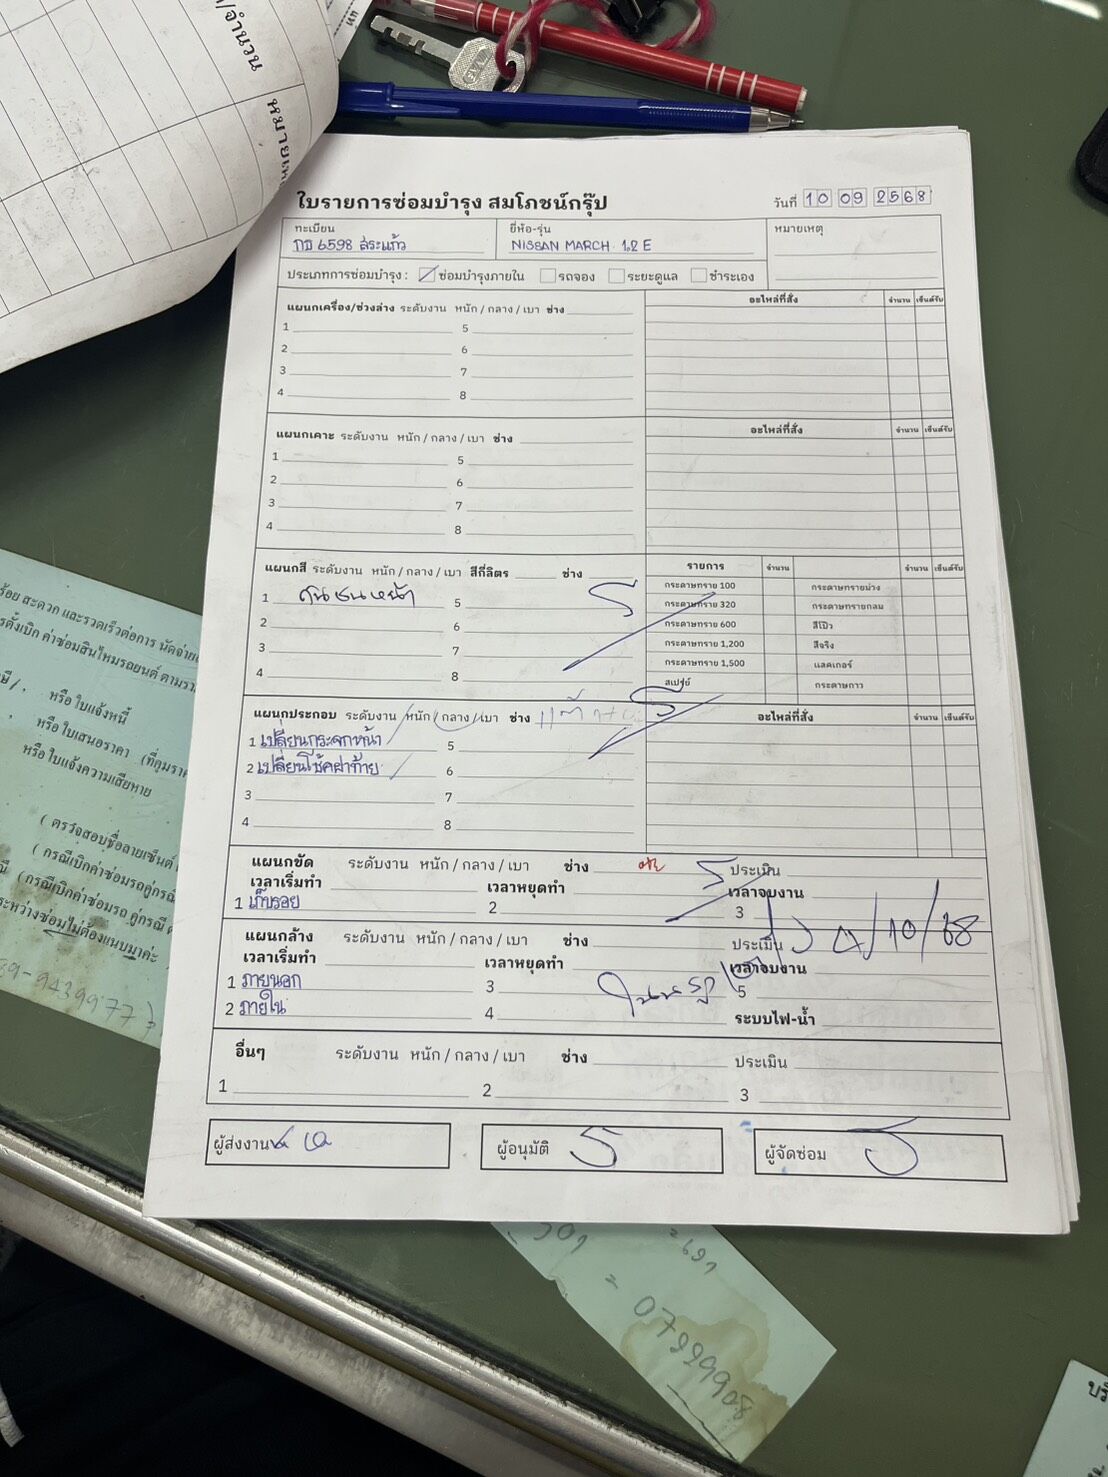 /จำนวน
หมายเหตุ
ใบรายการซ่อมบำรุง สมโภชน์กรุ๊ป
วันที่ 10 09 2568
ทะเบียน ยี่ห้อ-รุ่น หมายเหตุ
6598 สระแก้ว NISSAN MARCH 1.2 E
ประเภทการซ่อมบำรุง : ซ่อมบำรุงภายใน รถจอง ระยะดูแล ชำระเอง
แผนกเครื่อง/ช่วงล่าง ระดับงาน หนัก / กลาง / เบา ช่าง อะไหล่ที่สั่ง จำนวน เซ็นต์รับ
1 5
2 6
3 7
4 8
แผนกเคาะ ระดับงาน หนัก / กลาง / เบา ช่าง อะไหล่ที่สั่ง จำนวน เซ็นต์รับ
1 5
2 6
3 7
4 8
แผนกสี ระดับงาน หนัก / กลาง / เบา สีกี่ลิตร ช่าง รายการ จำนวน จำนวน เซ็นต์รับ
1 กันชนหน้า 5 กระดาษทราย 100 กระดาษทรายม่วง
กระดาษทราย 320 กระดาษทรายกลม
2 6 กระดาษทราย 600 สีโป๊ว
3 7 กระดาษทราย 1,200 สีจริง
กระดาษทราย 1,500 แลคเกอร์
4 8 สเปรย์ กระดาษกาว
แผนกประกอบ ระดับงาน หนัก / กลาง / เบา ช่าง อะไหล่ที่สั่ง จำนวน เซ็นต์รับ
1 เปลี่ยนกระจกหน้า 5
2 เปลี่ยนโช้คฝาท้าย 6
3 7
4 8
แผนกขัด ระดับงาน หนัก / กลาง / เบา ช่าง ประเมิน
เวลาเริ่มทำ เวลาหยุดทำ เวลาจบงาน
1 เก็บรอย 2 3
แผนกล้าง ระดับงาน หนัก / กลาง / เบา ช่าง ประเมิน
/10/68
เวลาเริ่มทำ เวลาหยุดทำ เวลาจบงาน
1 ภายนอก 3 5
2 ภายใน 4 ระบบไฟ-น้ำ
อื่นๆ ระดับงาน หนัก / กลาง / เบา ช่าง ประเมิน
1 2 3
ผู้ส่งงาน ผู้อนุมัติ ผู้จัดซ่อม
สะดวก และรวดเร็วต่อการ
ค่าซ่อมสินไหมรถยนต์
หรือ ใบแจ้งหนี้
หรือ ใบเสนอราคา
หรือ ใบแจ้งความเสียหาย
( ตรวจสอบชื่อลายเซ็นต์
( กรณีเบิกค่าซ่อมรถคู่กรณี
(กรณีเบิกค่าซ่อมรถ คู่กรณี
ระหว่างซ่อมไม่ต้องแนบมาค่ะ
89-9439977